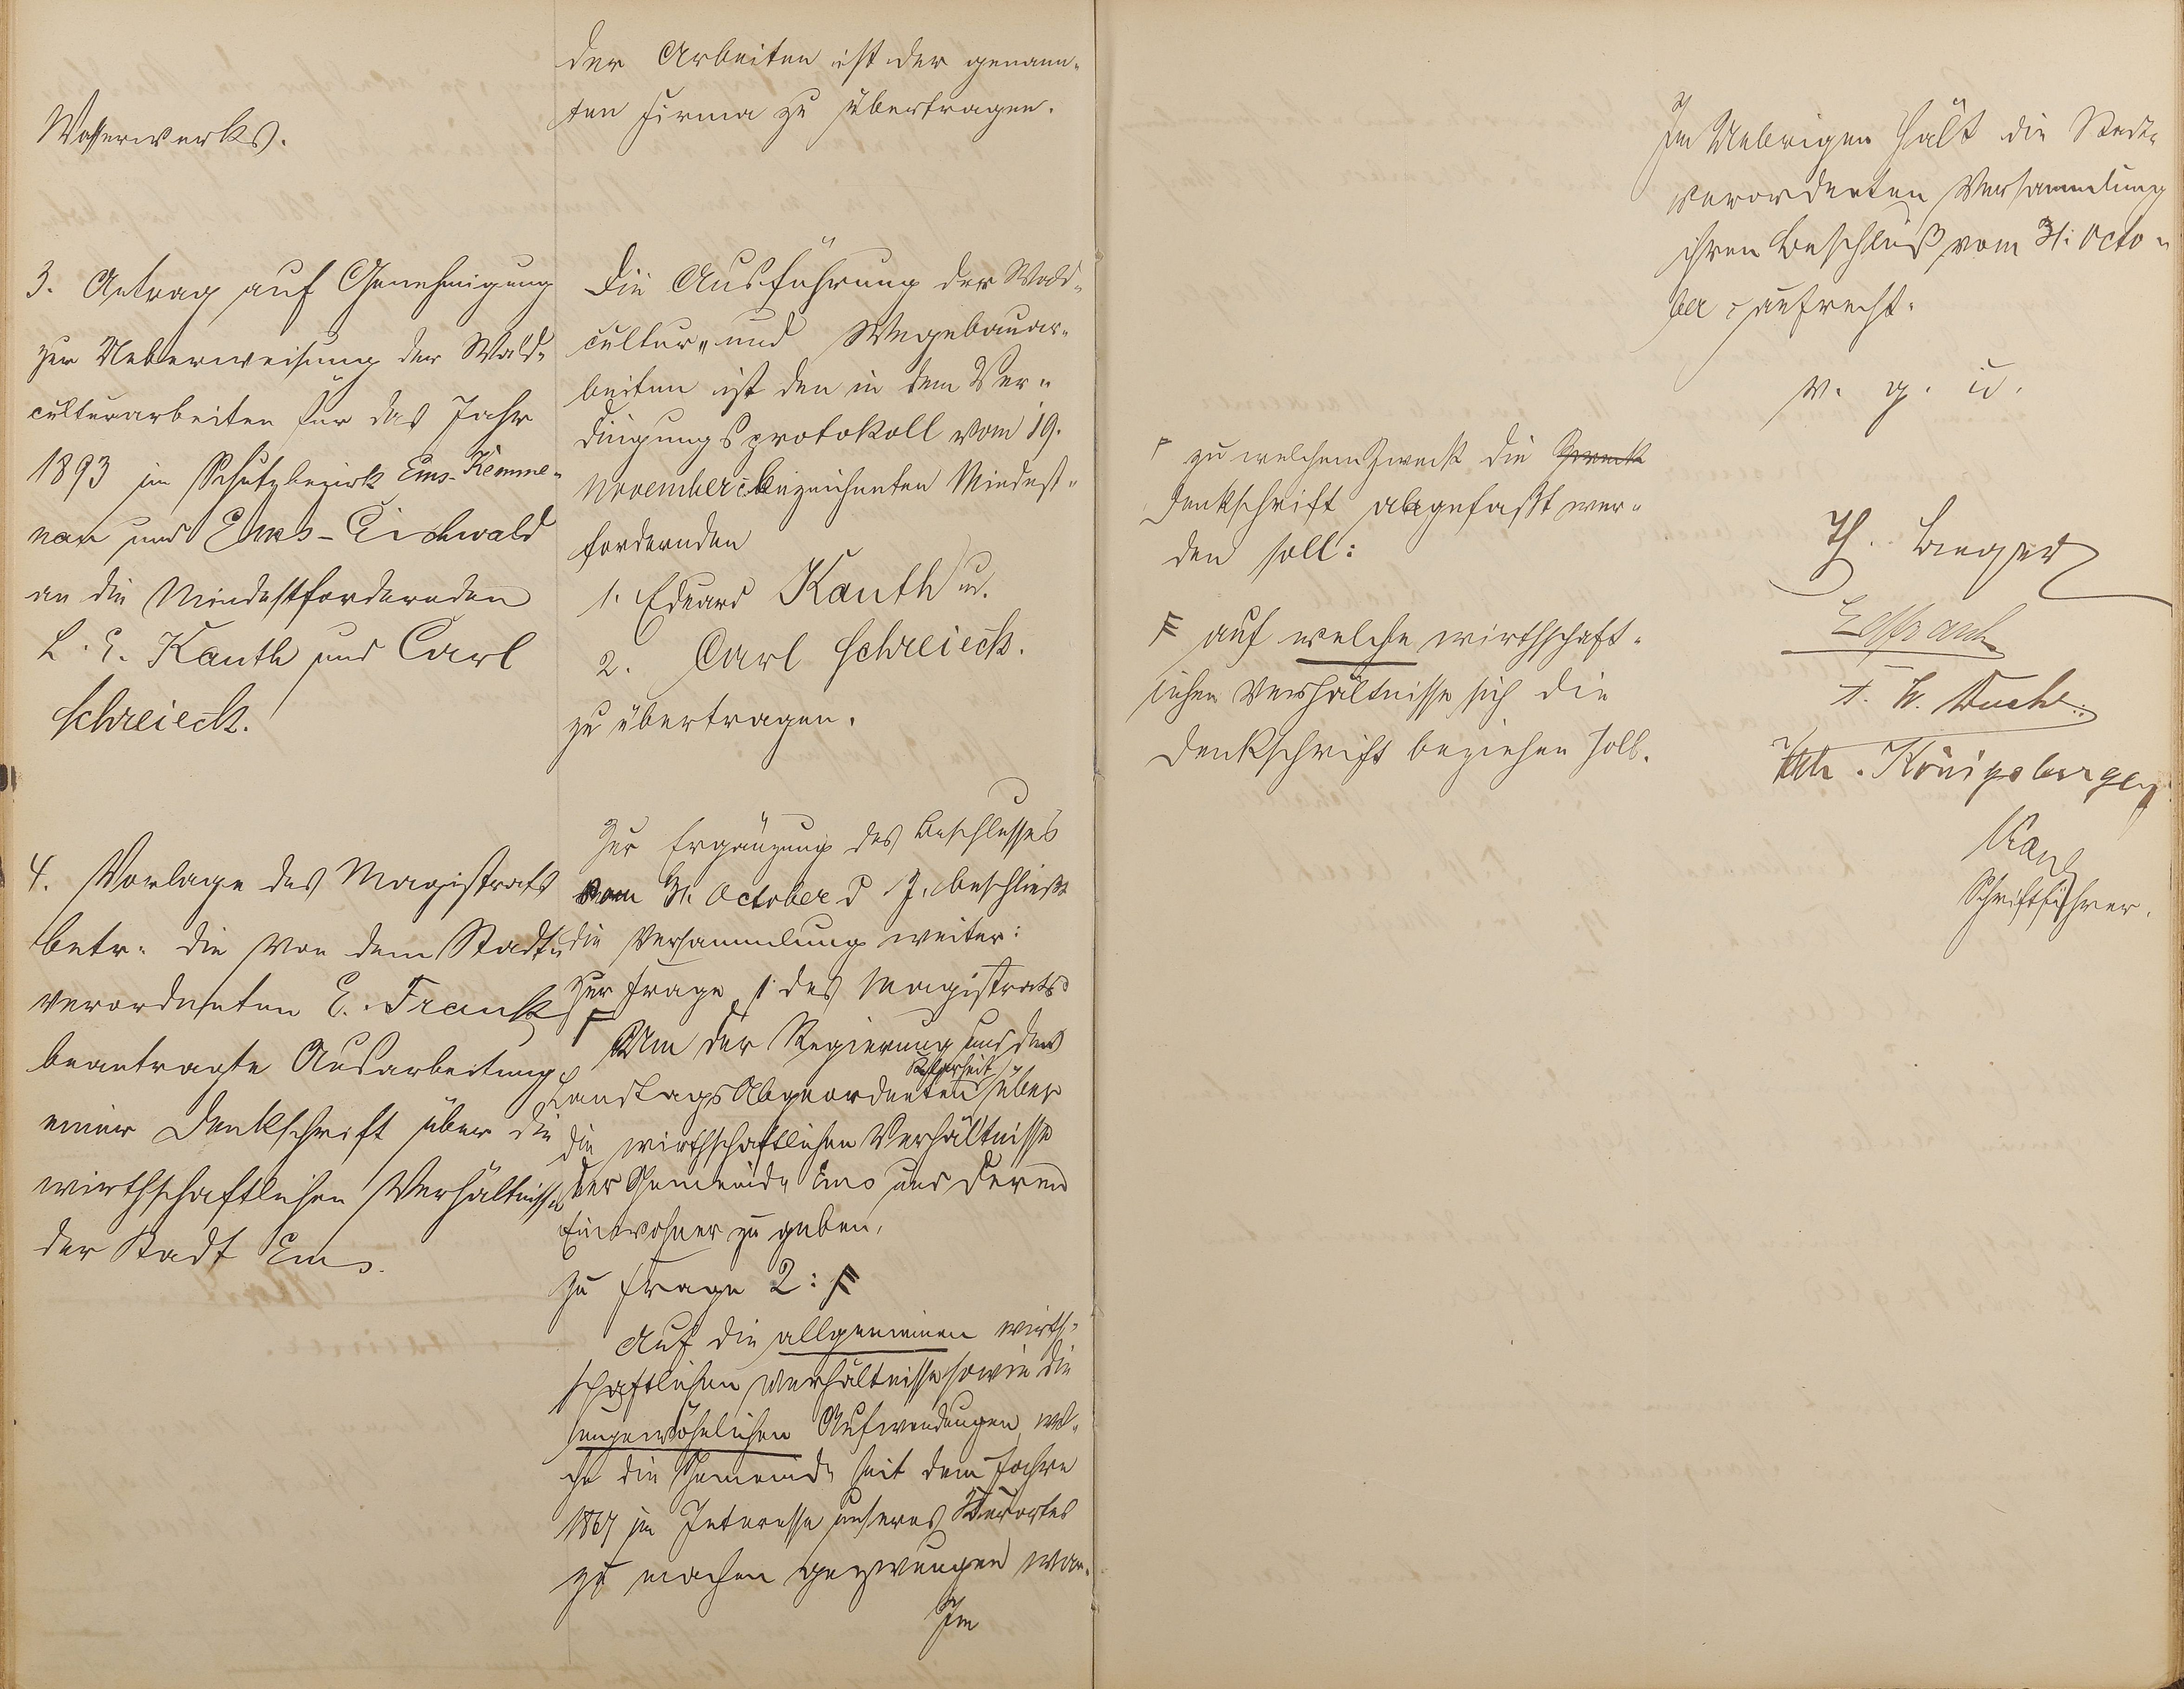 Wasserwerks.
3. Antrag auf Genehmigung
zur Ueberweisung der Wald-
culturarbeiten für das Jahr
1893 im Schutzbezirk Ems-Kemme-
nau und Ems-Eischwald
an die Mindestfordernden
L. E. Kauth und Carl
Schreieck.
4. Vorlage des Magistrats
betr. die von dem Stadt-
verordneten E. Frank
beantragte Ausarbeitung
einer Denkschrift über die
wirthschaftlichen Verhältnisse
der Stadt Ems.
der Arbeiten ist der genann-
ten Firma zu übertragen.
Die Ausführung der Wald-
cultur- und Wegebauar-
beiten ist den in dem Ver-
dingungsprotokoll vom 19.
November c. bezeichneten Mindest-
fordernden
1. Eduard Kauth u.
2. Carl Schreieck.
zu übertragen.
Zur Ergänzung des Beschlusses
vom 31. October d. J. beschließt
die Versammlung weiter:
Zur Frage 1. des Magistrats
F
Um der Regierung und den
Klarheit
Landtags Abgeordneten über
die wirthschaftlichen Verhältnisse
der Gemeinde Ems und deren
Einwohner zu geben,
Zu Frage 2: F
Auf die allgemeinen wirth-
schaftlichen Verhältnisse sowie die
ungewöhnlichen Aufwendungen, wel-
che die Gemeinde seit dem Jahre
1867 im Interesse unseres Kurortes
zu machen gezwungen war.
Im
F zu welchem Zweck die Zweck
Denkschrift abgefaßt wer-
den soll:
F auf welche wirthschaft-
lichen Verhältnisse sich die
Denkschrift beziehen soll.
Im Uebrigen hält die Stadt-
verordneten Versammlung
ihren Beschluß vom 31. Octo-
ber c. aufrecht.
v. g. u.
Th. Berger
E Frank
Königsberger
Schriftführer.